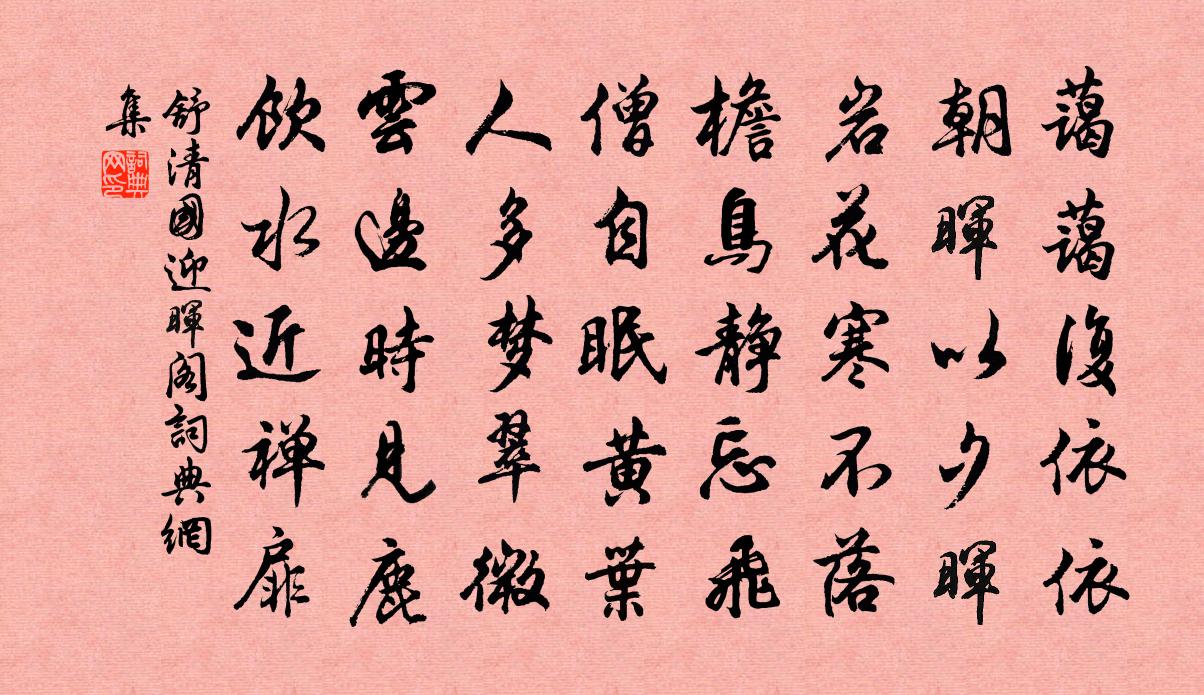 藹藹復依依
朝暉以夕暉
岩花寒不落
檐鳥静忘飛
僧自眠黄葉
人多梦翠微
雲邊時見鹿
飲水近禅扉
舒清國迎暉阁詞典網
集
詞典
网印